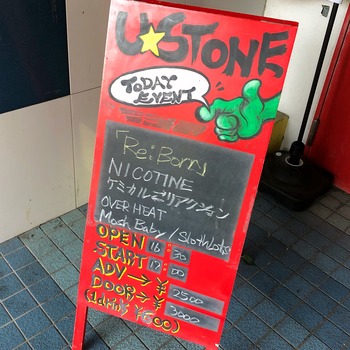 U★STONE
TODAY
EVENT
「Re:Born」
NICOTINE
ケミカル⇄リアクション
OVER HEAT
Mosh Baby / SlothLobs
OPEN 16:30
START 17:00
ADV → ¥2500
DOOR → ¥3000
(1drink ¥600)